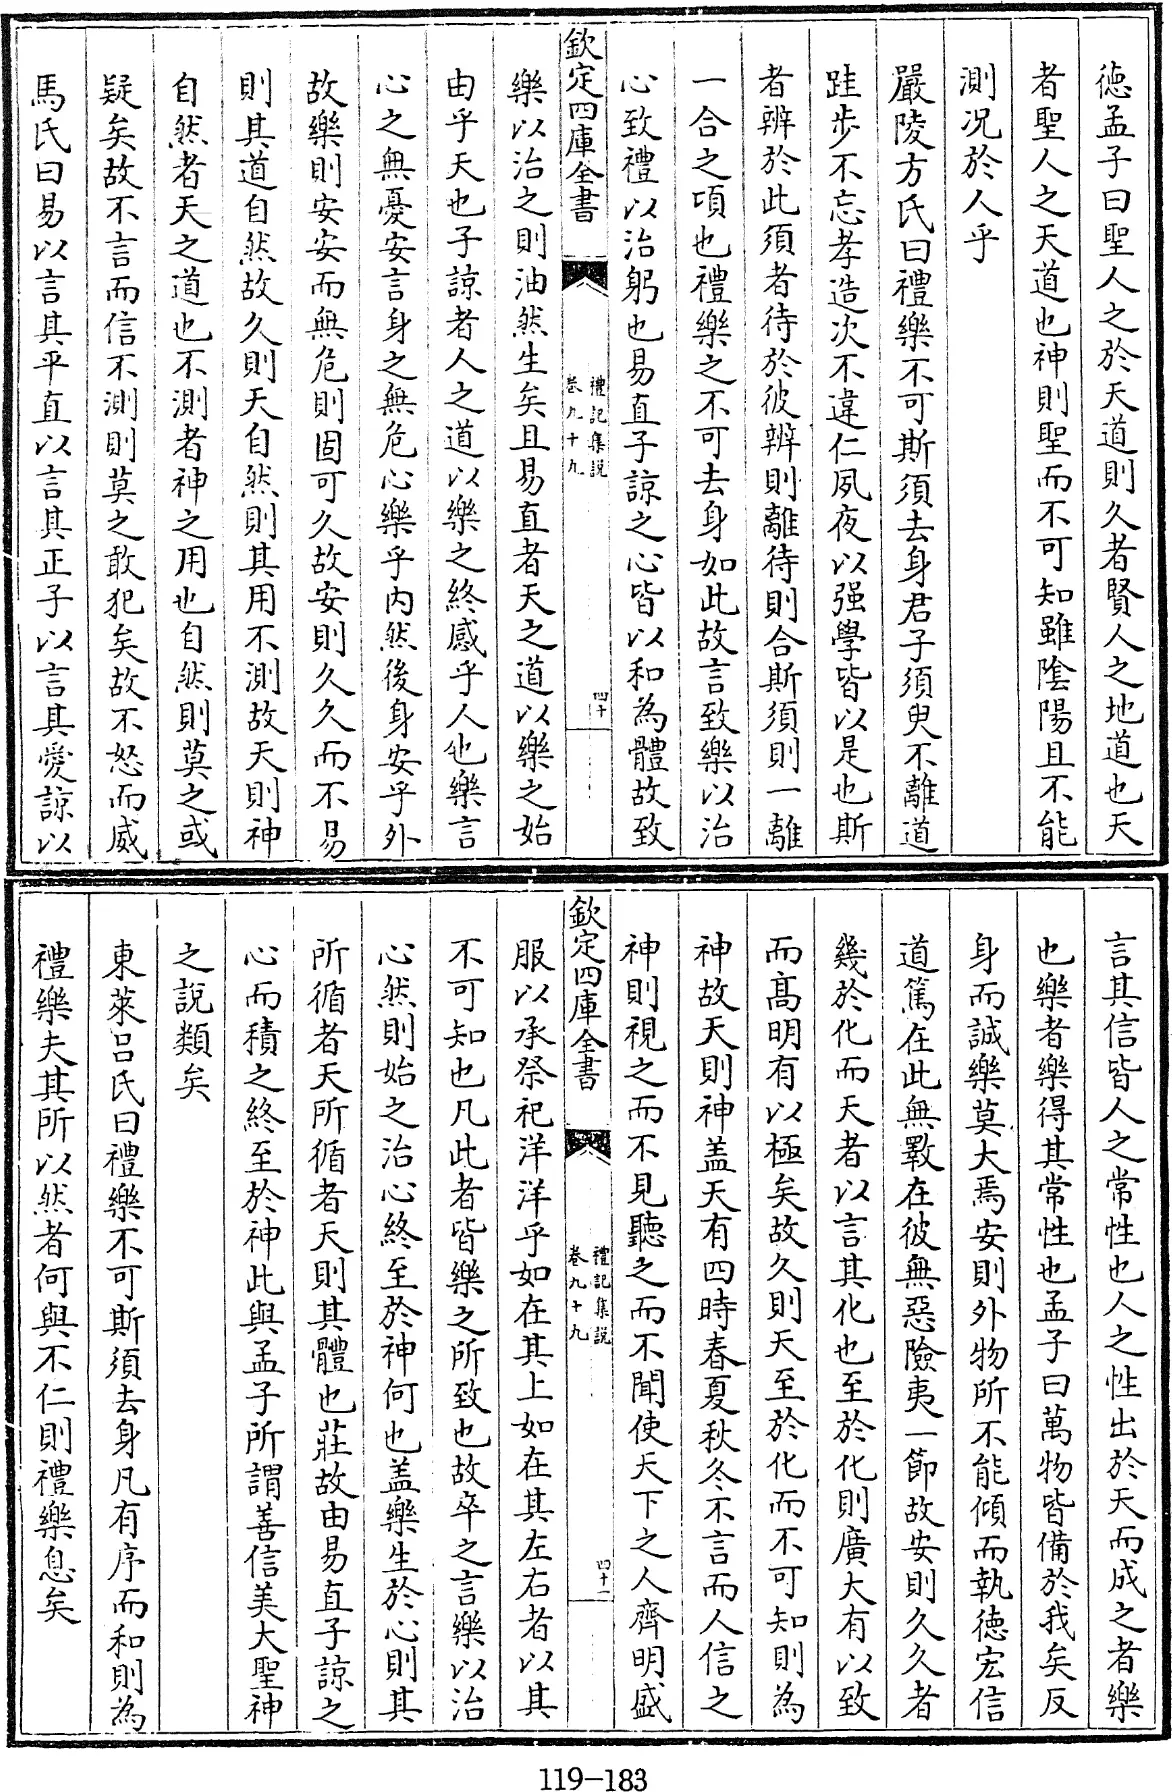 德孟子曰聖人之於天道則久者賢人之地道也天
者聖人之天道也神則聖而不可知雖陰陽且不能
測况於人乎
嚴陵方氏曰禮樂不可斯須去身君子須臾不離道
跬步不忘孝造次不違仁夙夜以强學皆以是也斯
者辨於此須者待於彼辨則離待則合斯須則一離
一合之頃也禮樂之不可去身如此故言致樂以治
心致禮以治躬也易直子諒之心皆以和為體故致
欽定四庫全書
禮記集説
卷九十九
四十
樂以治之則油然生矣且易直者天之道以樂之始
由乎天也子諒者人之道以樂之終感乎人也樂言
心之無憂安言身之無危心樂乎内然後身安乎外
故樂則安安而無危則固可久故安則久久而不易
則其道自然故久則天自然則其用不測故天則神
自然者天之道也不測者神之用也自然則莫之或
疑矣故不言而信不測則莫之敢犯矣故不怒而威
馬氏曰易以言其平直以言其正子以言其愛諒以
言其信皆人之常性也人之性出於天而成之者樂
也樂者樂得其常性也孟子曰萬物皆備於我矣反
身而誠樂莫大焉安則外物所不能傾而執德宏信
道篤在此無斁在彼無惡險夷一節故安則久久者
幾於化而天者以言其化也至於化則廣大有以致
而高明有以極矣故久則天至於化而不可知則為
神故天則神盖天有四時春夏秋冬不言而人信之
神則視之而不見聽之而不聞使天下之人齊明盛
欽定四庫全書
禮記集説
卷九十九
四十一
服以承祭祀洋洋乎如在其上如在其左右者以其
不可知也凡此者皆樂之所致也故卒之言樂以治
心然則始之治心終至於神何也盖樂生於心則其
所循者天所循者天則其體也莊故由易直子諒之
心而積之終至於神此與孟子所謂善信美大聖神
之說類矣
東萊吕氏曰禮樂不可斯須去身凡有序而和則為
禮樂夫其所以然者何與不仁則禮樂息矣
119-183